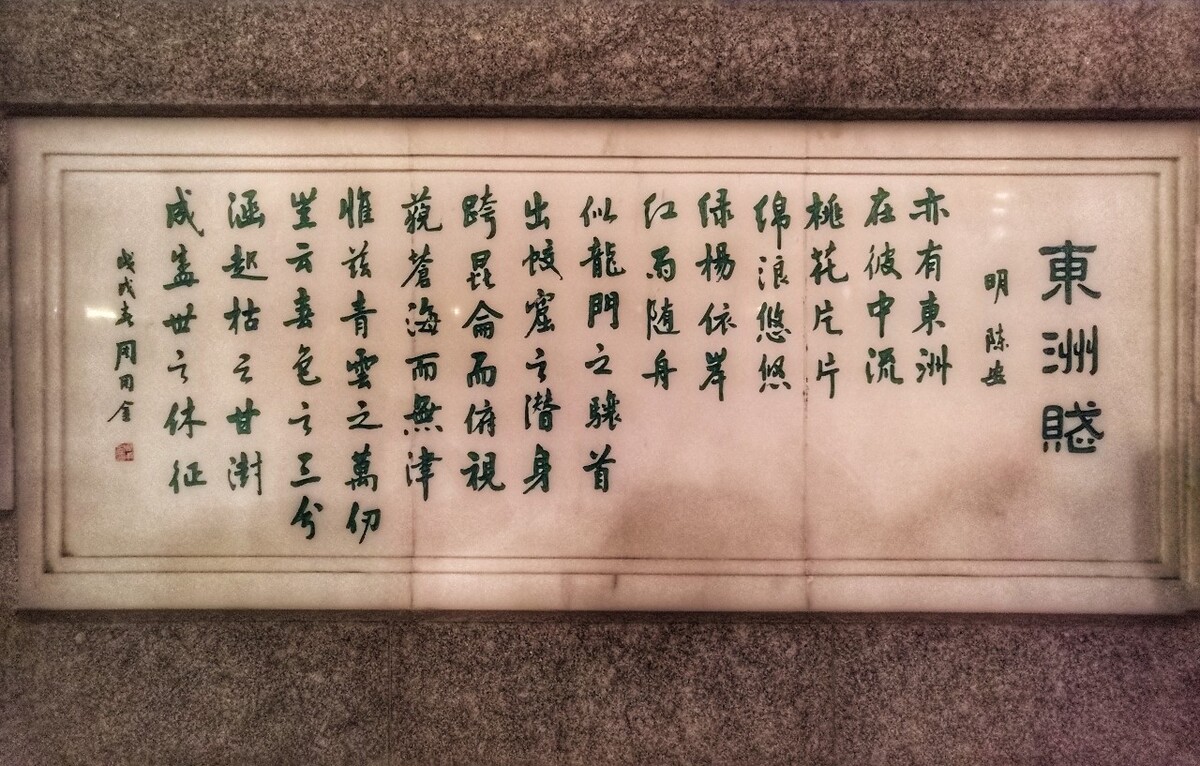 東洲賦
明 陈安
亦有東洲
在彼中流
桃花片片
绵浪悠悠
绿楊依岸
红雨随舟
似龍門之驤首
出蛟窟之潜身
跨昆侖而俯視
藐蒼海而無津
惟兹青雲之萬仞
坐云春色之三分
涵起枯之甘澍
成盖世之休征
戊戌春周同金